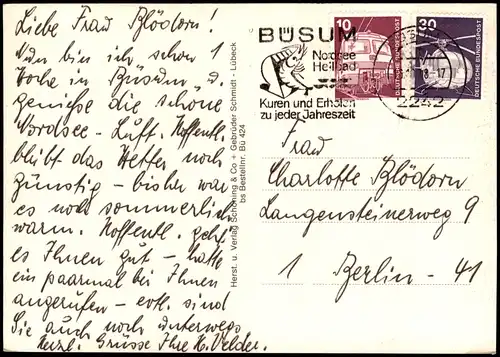 Liebe Frau Blödorn!
Nun bin ich schon 1
Woche in Büsum u.
genieße die schöne
Nordsee - Luft. Hoffentl.
bleibt das Wetter noch
günstig - bisher war
es noch sommerlich
warm. Hoffentl. geht
es Ihnen gut - hatte
ein paarmal bei Ihnen
angerufen - evtl. sind
Sie auch noch unterwegs
Herzl. Grüsse Ihre H. Velder.
Herst. u. Verlag Schöning & Co + Gebrüder Schmidt - Lübeck
bs Bestellnr. Bü 424
BÜSUM
Nordsee
Heilbad
Kuren und Erholen
zu jeder Jahreszeit
10
DEUTSCHE BUNDESPOST
30
DEUTSCHE BUNDESPOST
2242
Frau
Charlotte Blödorn
Langensteinerweg 9
1 Berlin - 41